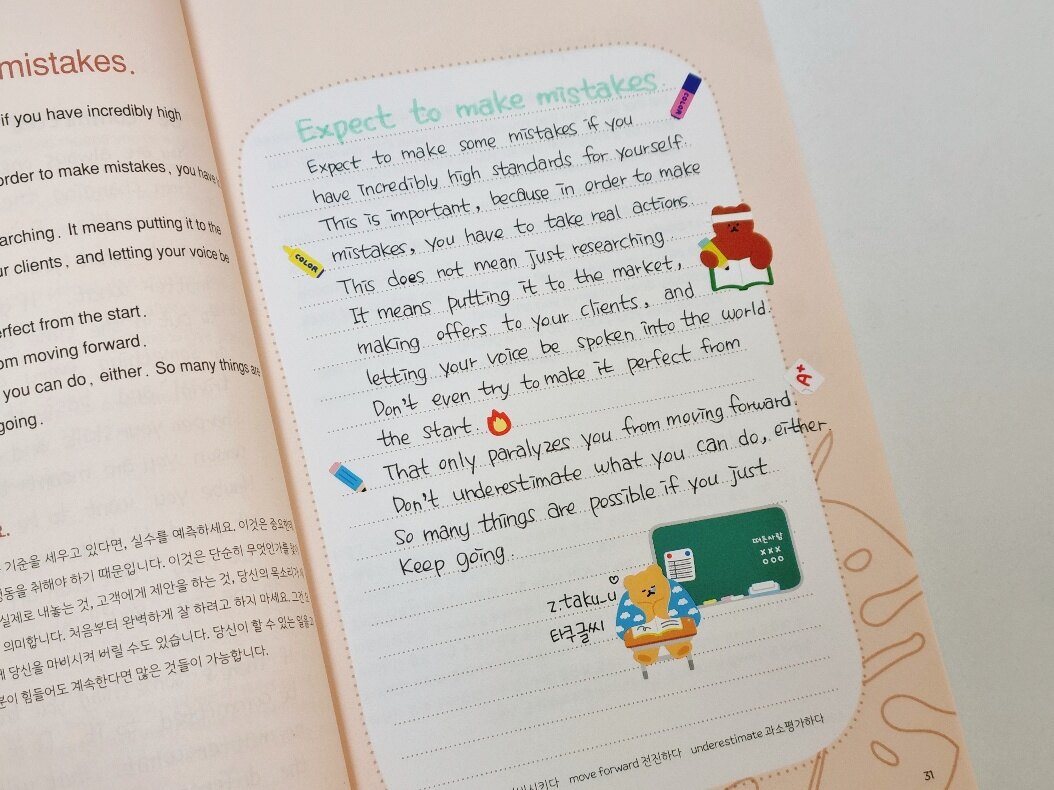 mistakes.
if you have incredibly high
order to make mistakes, you have
arching. It means putting it to the
ur clients, and letting your voice be
erfect from the start.
om moving forward.
you can do, either. So many things are
going.
기준을 세우고 있다면, 실수를 예측하세요. 이것은 중요한데
행동을 취해야 하기 때문입니다. 이것은 단순히 무엇인가를
실제로 내놓는 것, 고객에게 제안을 하는 것, 당신의 목소리가
의미합니다. 처음부터 완벽하게 잘 하려고 하지 마세요. 그건
당신을 마비시켜 버릴 수도 있습니다. 당신이 할 수 있는 일을
분이 힘들어도 계속한다면 많은 것들이 가능합니다.
Expect to make mistakes.
Expect to make some mistakes if you
have incredibly high standards for yourself.
This is important, because in order to make
mistakes, you have to take real actions.
This does not mean just researching
It means putting it to the market,
making offers to your clients, and
letting your voice be spoken into the world.
Don't even try to make it perfect from
the start.
That only paralyzes you from moving forward.
Don't underestimate what you can do, either.
So many things are possible if you just
keep going.
COLOR
COLOR
A+
떠든사람
xxx
ooo
z_taku_u
타쿠글씨
비시키다 move forward 전진하다 underestimate 과소평가하다
31